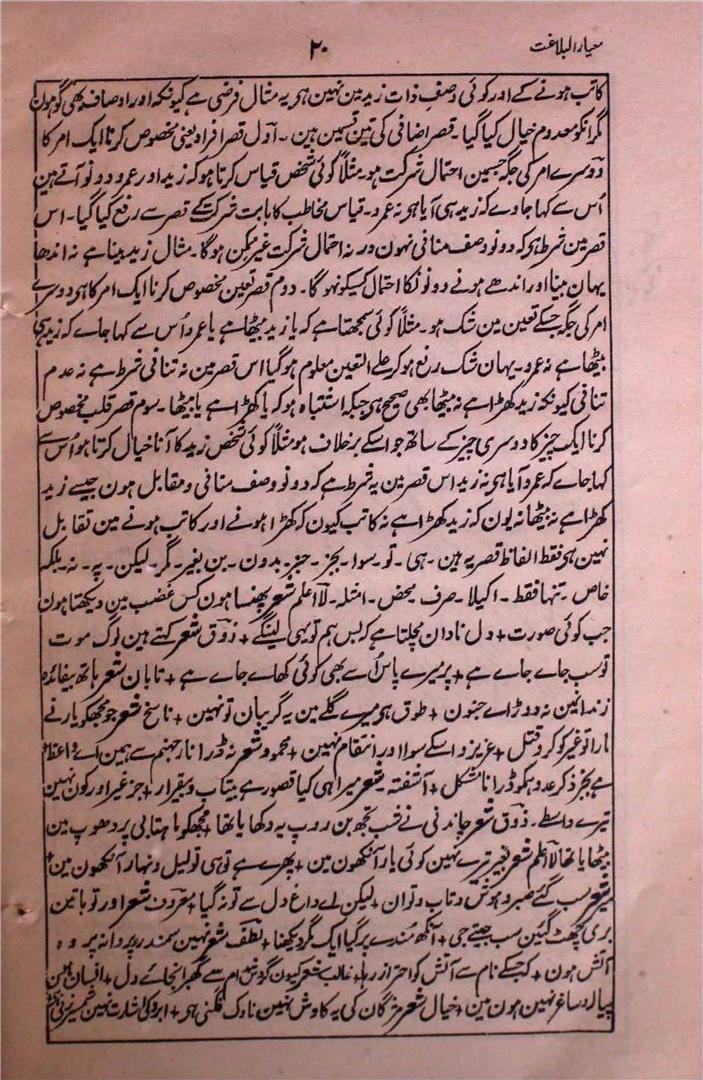 معیار البلاغت
۲۰
کاتب ہونے کے اور کوئی وصف ذات زید مین نہین ہی یہ مثال فرضی ہے کیونکہ اور اوصاف بھی گو ہون
مگر انکو معدوم خیال کیا گیا ۔ قصر اضافی کی تین قسمین ہین ۔ اول قصر افراد یعنی مخصوص کرنا ایک امر کا
دوسرے امر کی جگہ جسمین احتمال شرکت ہو۔ مثلاً کوئی شخص قیاس کرتا ہو کہ زید اور عمرو دونو آتے ہین
اُس سے کہا جاوے کہ زید ہی آیا ہی نہ عمرو۔ قیاس مخاطب کا بابت شرکت کے قصر سے رفع کیا گیا۔ اس
قصر مین شرط ہی کہ دونو وصف منافی نہون ورنہ احتمال شرکت غیر ممکن ہوگا۔ مثال زید بینا ہے نہ اندھا
یہان بینا اور اندھے ہونے دونو نکا احتمال کسیکو نہوگا۔ دوم قصر تعین مخصوص کرنا ایک امر کا ہی دوسرے
امر کی جگہ جسکے تعین مین شک ہو۔ مثلاً کوئی سمجھتا ہے کہ یا زید بیٹھا ہے یا عمرو اُس سے کہا جاے کہ زید ہی
بیٹھا ہے نہ عمرو۔ یہان شک رفع ہو کر علے التعین معلوم ہو گیا اس قصر مین نہ تنافی شرط ہے نہ عدم
تنافی کیونکہ زید کھڑا ہے نہ بیٹھا بھی صحیح ہی جبکہ اشتباہ ہو کہ یا کھڑا ہے یا بیٹھا ۔ سوم قصر قلب مخصوص
کرنا ایک چیز کا دوسری چیز کے ساتھ جو اسکے برخلاف ہو مثلاً کوئی شخص زید کا آنا خیال کرتا ہو اُس سے
کہا جاے کہ عمرو آیا ہی نہ زید اس قصر مین یہ شرط ہے کہ دونو وصف منافی و مقابل ہون جیسے زید
کھڑا ہے نہ بیٹھا نہ یون کہ زید کھڑا ہے نہ کاتب کیون کہ کھڑا ہونے اور کاتب ہونے مین تقابل
نہین ہی فقط الفاظ قصر یہ ہین ۔ ہی ۔ تو ۔ سوا ۔ بجز ۔ جز ۔ بدون ۔ بن بغیر ۔ مگر ۔ لیکن ۔ پہ ۔ نہ ۔ بلکہ
خاص ۔ تنہا فقط ۔ اکیلا ۔ صرف ۔ محض ۔ امثلہ ۔ لا اعلم شعر پھنسا ہون کس غضب مین دیکھتا ہون
جب کوئی صورت + دل نادان مچلتا ہے کہ بس ہم تو یہی لینگے + ذوق شعر کہتے ہین لوگ موت
تو سب جاے جاے ہے + پر میرے پاس اُسے بھی کوئی کھاے جاے ہے + تابان شعر ہاتھ بیفائدہ
زندانمین نہ دوڑا اے جنون + طوق ہی میرے گلے مین یہ گریبان تو نہین + ناسخ شعر جو مجھکو یار نے
مارا تو غیر کو کرو قتل + عزیزو اسکے سوا اور انتقام نہین + محمود شعر نہ ڈرا نار جہنم سے ہمین اے واعظ
ہے بجز ذکر عدو ہمکو ڈرانا مشکل + آشفتہ شعر میرا ہی کیا قصور ہے بیتاب و بیقرار + جز غیر اور کون نہین
تیرے واسطے ۔ ذوق شعر چاندنی نے شب تجھ بن روپ یہ دکھایا تھا + مجھکو ماہتابی پر دھوپ مین
بٹھایا تھا لا اعلم شعر بغیر تیرے نہین کوئی یار آنکھون مین + پھرے ہے توہی تو لیل و نہار آنکھون مین +
شعر سب گئے صبر و ہوش و تاب و توان + لیکن اے داغ دل سے تو نہ گیا + معروف شعر اور تو باتین
بری چھٹ گئین سب جیتے جی + آنکھ مُندے پر گیا ایک گر دیکھنا + لطف شعر نہین سمندر پروانہ پر وہ
آتش ہون + کہ جسکے نام سے آتش کو احتراز رہا۔ غالب شعر کیون گردش مدام سے گھبرا نجائے دل + انسان ہون
پیالہ و ساغر نہین ہون مین + خیال شعر مژگان کی یہ کاوش نہین ناوک فگنی ہی + ابرو کی اشارت نہین شمشیر زنی